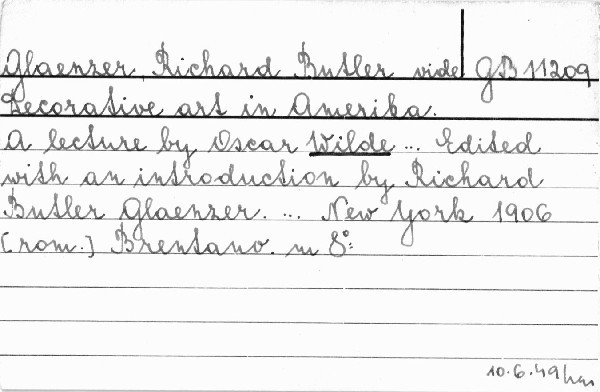 Glaenzer, Richard Butler vide GB 11209
Decorative art in Amerika.
A lecture by Oscar Wilde ... Edited
with an introduction by Richard
Butler Glaenzer. ... New York 1906
[rom.] Brentano. in 8°:
10.6.49